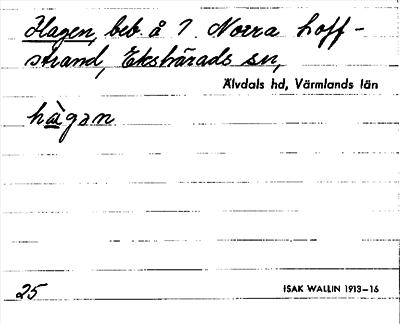 Hagen, beb. å 7 Norra Loff-
strand, Ekshärads sn,
Älvdals hd, Värmlands län
hàgən
25
ISAK WALLIN 1913–16